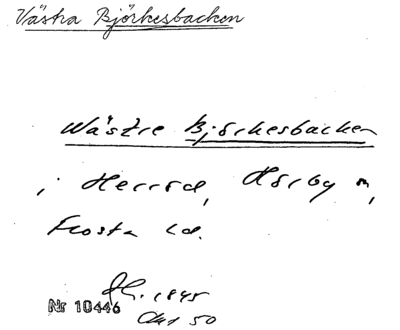 Västra Björkesbacken
Wästre Björkesbacken
i Herrod, Hörby n,
Frosta hd.
1845
Nr 10446
50